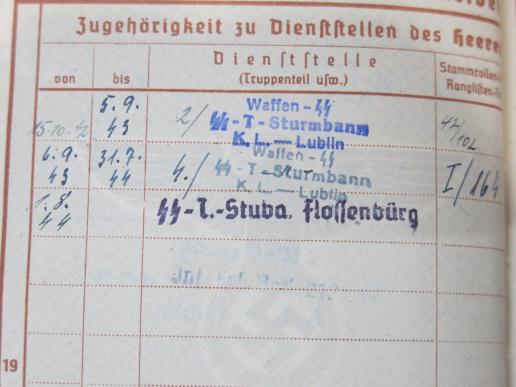 Zugehörigkeit zu Dienststellen des Heere
von
bis
Dienststelle
(Truppenteil usw.)
Stammrollen-
Ranglisten-
15.10.42
5.9.
43
2/
Waffen-SS
SS-T-Sturmbann
K. L. — Lublin
47/102
6.9.
43
31.7.
44
4./
Waffen-SS
SS-T-Sturmbann
K. L. — Lublin
I/164
1.8.
44
SS-T.-Stuba. Flossenbürg
19